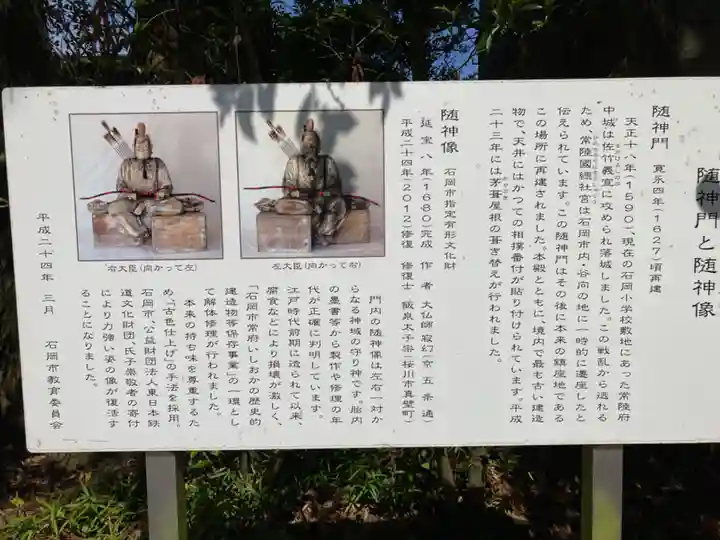 随神門と随神像
随神門　寛永四年(1627)頃再建
天正十八年(1590)、現在の石岡小学校敷地にあった常陸府
中城は佐竹義宣に攻められ落城しました。この戦乱から逃れる
ため、常陸國總社宮は石岡市内・谷向の地に一時的に遷座したと
伝えられています。この随神門はその後に本来の鎮座地である
この場所に再建されました。本殿とともに、境内で最も古い建造
物で、天井にはかつての相撲番付が貼り付けられています。平成
二十三年には茅葺屋根の葺き替が行われました。
随神像　石岡市指定有形文化財
延宝八年(1680)完成　作者　大仏師寂幻(京　五条通)
平成二十四年(2012)修復　修復士　飯泉太子宗(桜川市真壁町)
門内の随神像は左右一対か
らなる神域の守り神です。胎内
の墨書等から製作や修理の年
代が正確に判明しています。
江戸時代前期に造られて以来、
腐食などにより損壊が激しく、
「石岡市常府いしおかの歴史的
建造物等保存事業」の一環とし
て解体修理が行われました。
本来の持ち味を尊重するた
め「古色仕上げ」の手法を採用。
石岡市、公益財団法人東日本鉄
道文化財団、氏子崇敬者の寄付
により力強い姿の像が復活す
ることになりました。
平成二十四年　三月　石岡市教育委員会
左大臣(向かって右)
右大臣(向かって左)